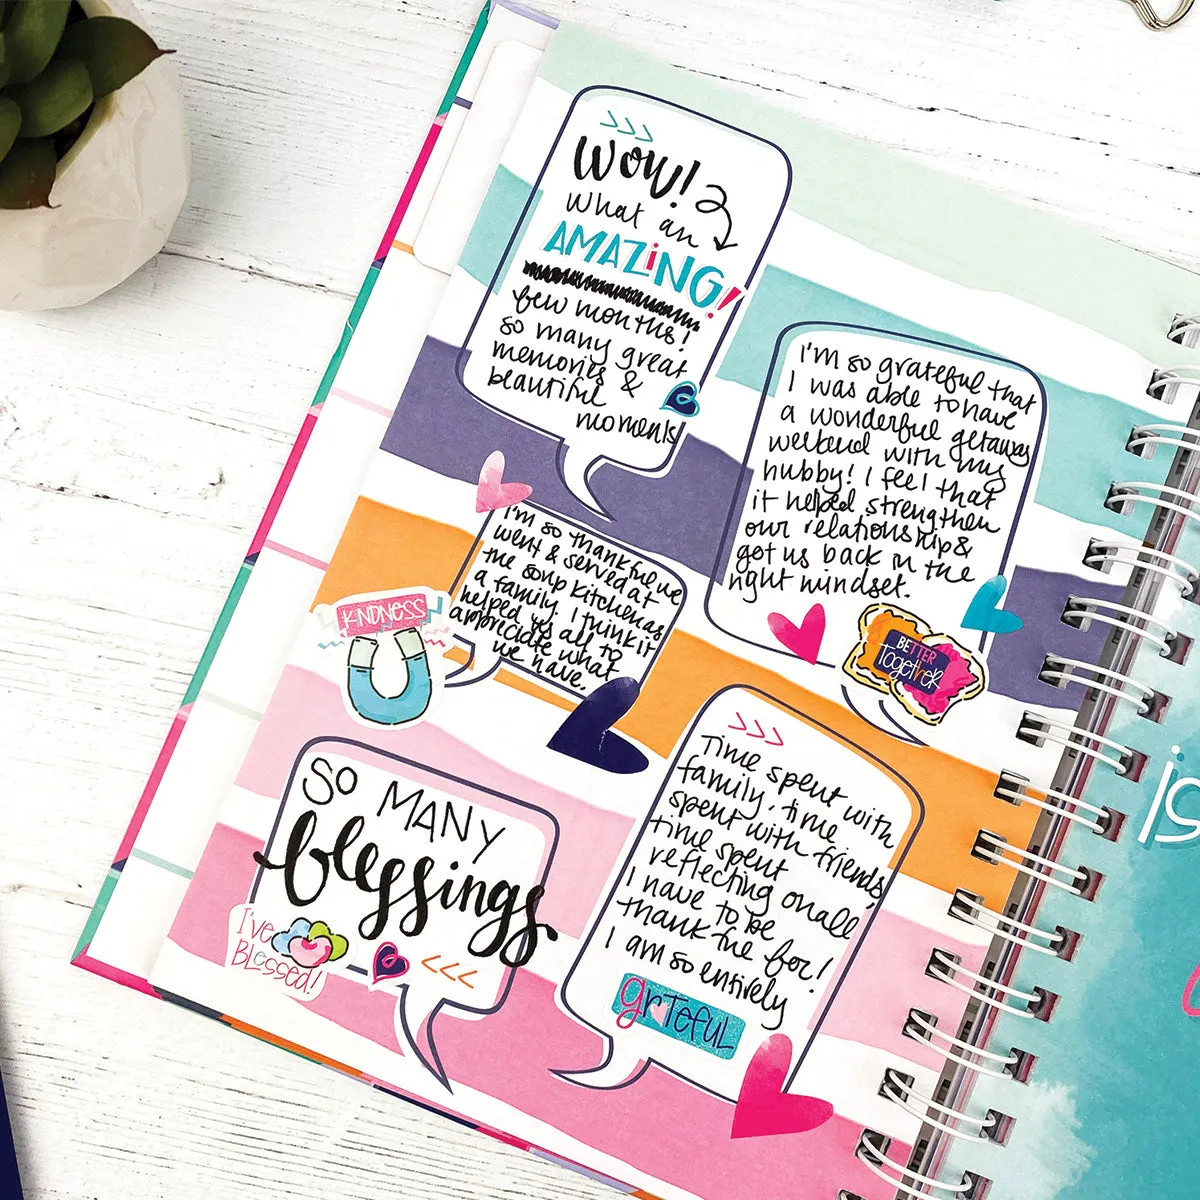 WOW!
What an
AMAZiNG!
few months!
so many great
memories &
beautiful
moments
I'm so grateful that
I was able to have
a wonderful getaway
weekend with my
hubby! I feel that
it helped strengthen
our relationship &
got us back in the
right mindset.
BETTER
TogetHeR
I'm so thankful we
went & served at
the soup kitchen as
a family. I think it
helped us all to
appreciate what
we have.
KiNDNESS
SO MANY
blessings
I've
BLessed!
Time spent with
family, time
spent with friends,
time spent
reflecting on all
I have to be
thankful for!
I am so entirely
grateful